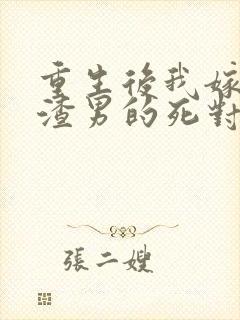 重生後我嫁
渣男的死對
張二嫂